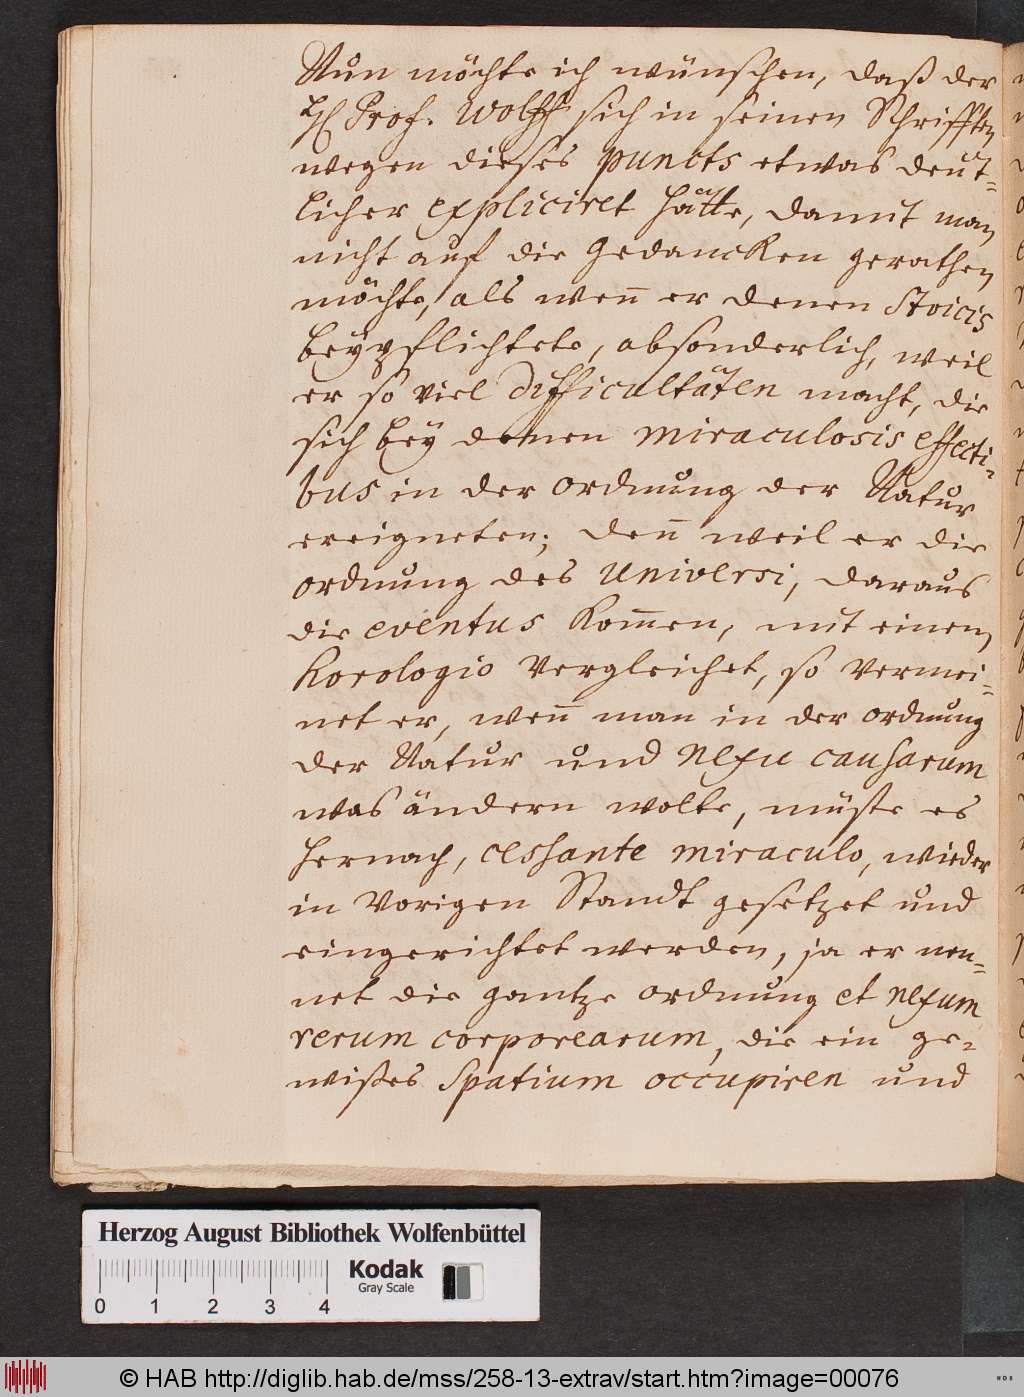 Nun möchte ich wünschen, daß der
H. Prof. Wolff sich in seinen Schrifften
wegen dieses puncts etwas deüt-
licher expliciret hätte, damit man
nicht auf die Gedancken gerathen
möchte, als weñ er denen Stoicis
beypflichtete, absonderlich, weil
er so viel difficultäten macht, die
sich bey denen miraculosis effecti-
bus in der ordnung der Natur
ereigneten; deñ weil er die
ordnung des Universi, daraus
die eventus kom̃en, mit einem
horologio vergleichet, so vermei-
net er, weñ man in der ordnung
der Natur und nexu causarum
was ändern wolte, müste es
hernach, cessante miraculo, wieder
in vorigen Standt gesetzet und
eingerichtet werden, ja er nen-
net die gantze ordnung et nexum
rerum corporearum, die ein ge-
wißes Spatium occupiren und
Herzog August Bibliothek Wolfenbüttel
Kodak
Gray Scale
0 1 2 3 4
© HAB http://diglib.hab.de/mss/258-13-extrav/start.htm?image=00076